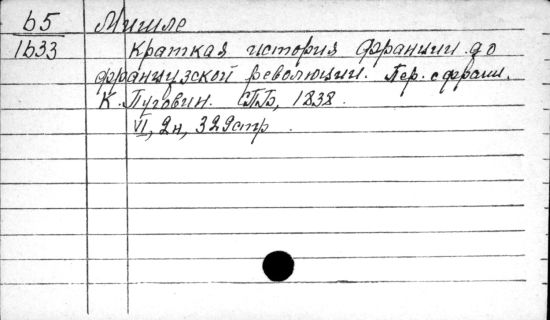 b5 Мишле
1b33 Краткая история Франции до
французской революции. Пер. с франц.
К. Пуговин. СПБ, 1838.
VI, 2н, 329стр.